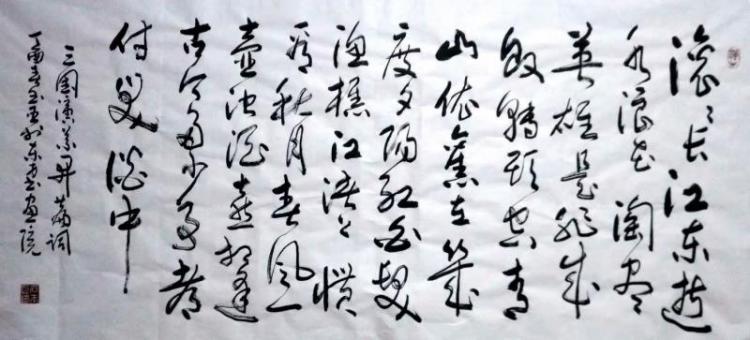 滚滚长江东逝
水浪花淘尽
英雄是非成
败转头空青
山依旧在几
度夕阳红白发
渔樵江渚上惯
看秋月春风一
壶浊酒喜相逢
古今多少事都
付笑谈中
三国演义开篇词
丁酉春 书画院